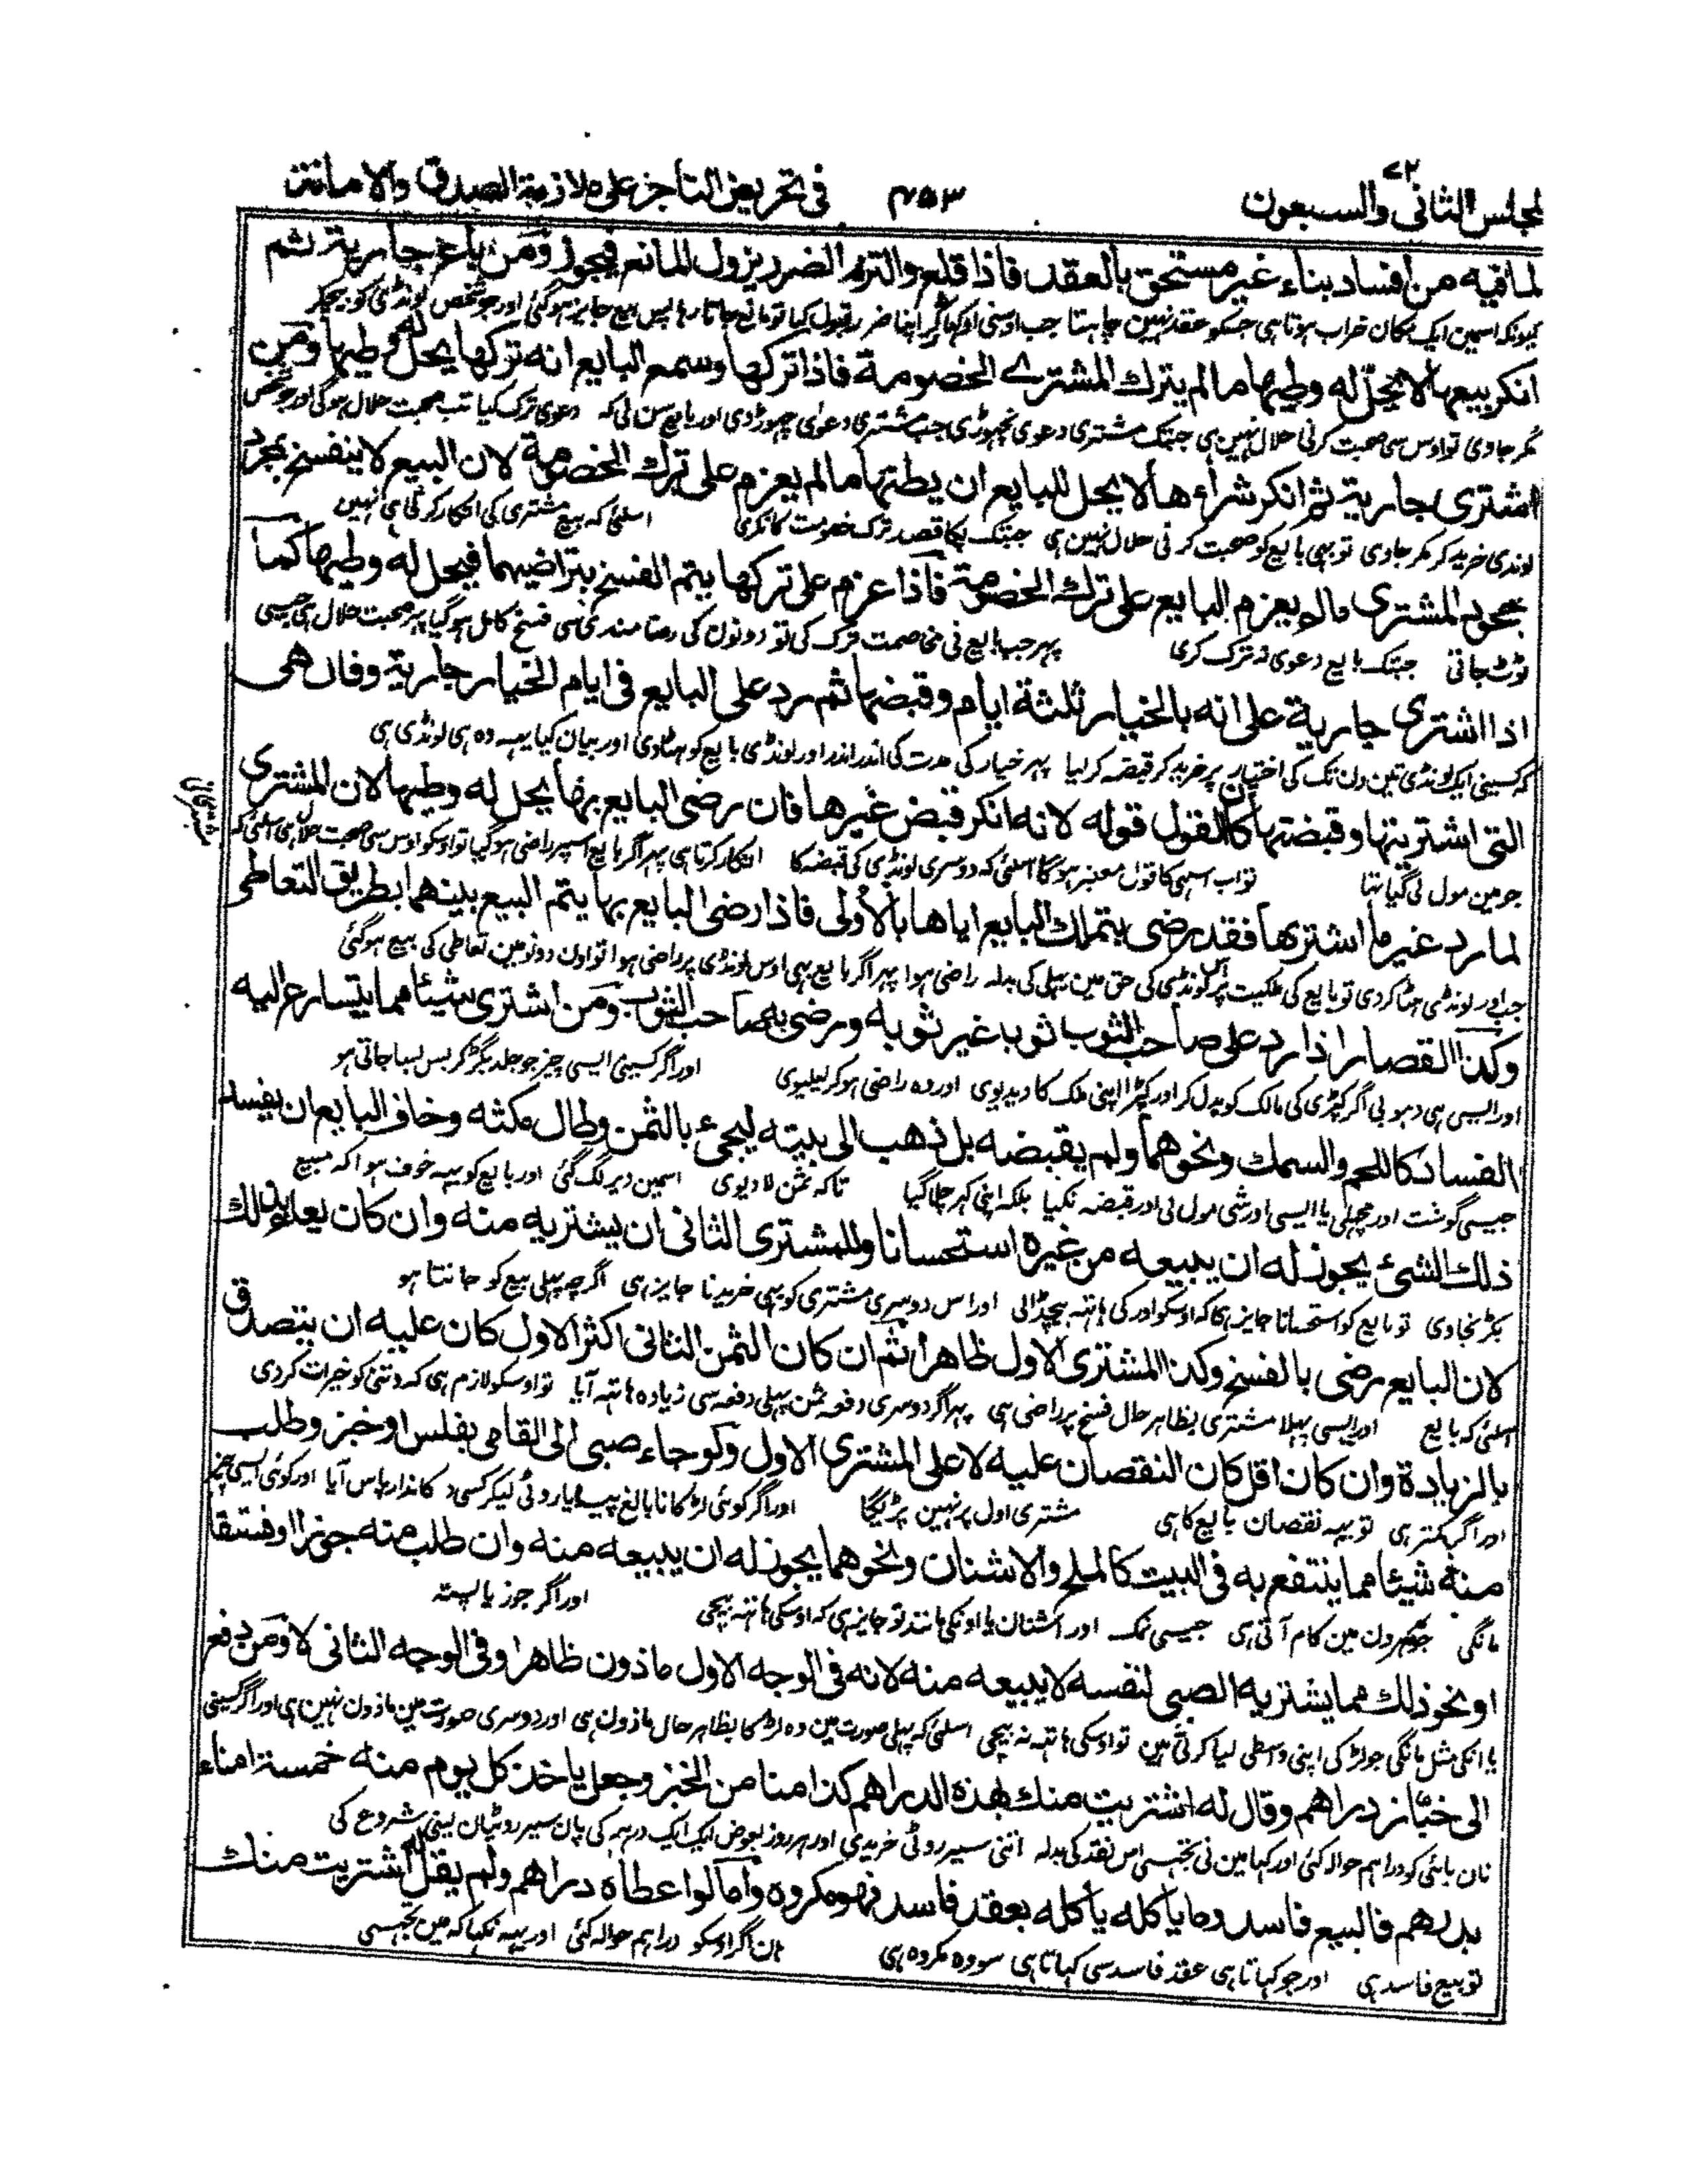 لمجلس الثانی والسبعون ٧٢
٤٥٣
فی تحریض التاجر علی ملازمة الصدق والامانة
لما فیه من افساد بناء غیر مستحق بالعقد فاذا قلع والتزم الضرر یزول المانع فیجوز ومن باع جاریة ثم
کیونکہ اسمین ایک مکان خراب ہوتا ہی جسکو عقد نہین چاہتا جب اوسنی اوکھاڑکر اپنا ضرر قبول کیا تو مانع جاتا رہا پس بیع جایز ہو گئی اور جو شخص لونڈی کو بیچکر
انکر بیعها لا یحل له وطیها ما لم یترك المشتری الخصومة فاذا ترکها وسمع البایع انه ترکها یحل له وطیها ومن
مکر جاوی تو اوس سی صحبت کرنی حلال نہین ہی جبتک مشتری دعوی نچہوڑی جب مشتری دعوی چہوڑدی اور بایع سن لی کہ دعوی ترک کیا تب صحبت حلال ہوگی اور جو شخص
اشتری جاریة ثم انکر شراءها لا یحل للبایع ان یطئها ما لم یعزم علی ترك الخصومة لان البیع لا ینفسخ بمجرد
لونڈی خرید کر مکر جاوی تو بہی بایع کو صحبت کرنی حلال نہین ہی جبتک پکا قصد ترک خصومت کا نکری اسلئی کہ بیع مشتری کی انکار کرنی ہی نہین
جحود المشتری مالم یعزم البایع علی ترك الخصومة فاذا عزم علی ترکها یتم الفسخ بتراضیهما فیحل له وطیها کما
ٹوٹ جاتی جبتک بایع دعوی نہ ترک کری پہر جب بایع نی مخاصمت ترک کی تو دونون کی رضامندی سی فسخ کامل ہو گیا پہر صحبت حلال ہی جیسی
اذا اشتری جاریة علی انه بالخیار ثلثة ایام وقبضها ثم رد علی البایع فی ایام الخیار جاریة وقال هی
کہ کسینی ایک لونڈی تین دن تک کی اختیار پر خرید کر قبضہ کر لیا پہر خیار کی مدت کی اندر اندر اور لونڈی بایع کو ہٹادی اور بیان کیا یہہ وہ ہی لونڈی ہی
التی اشتریتها وقبضتها کان القول قوله لانه انکر قبض غیرها فان رضی البایع بها یحل له وطیها لان المشتری
جو مین مول لی گیا تہا تو اب اسہی کا قول معتبر ہوگا اسلئی کہ دوسری لونڈی کی قبضہ کا انکار کرتا ہی پہر اگر بایع اسپر راضی ہو گیا تو اوسکو اوس سی صحبت حلال ہی اسلئی کہ
لما رد غیر ما اشتراها فقد رضی بتملك البایع ایاها بالاولی فاذا رضی البایع بها یتم البیع بینهما بطریق التعاطی
جب اور لونڈی ہٹا کر دی تو بایع کی ملکیت پر لونڈی کی حق مین پہلی کی بدلہ راضی ہوا پہر اگر بایع بہی اوس لونڈی پر راضی ہوا تو اون دونومین تعاطی کی بیع ہو گئی
وکذا القصار اذا رد علی صاحب الثوب ثوبا غیر ثوبه ورضی به صاحب الثوب ومن اشتری شیئا مما یتسارع الیه
اور ایسی ہی دہوبی اگر کپڑی کی مالک کو بدل کر اور کپڑا اپنی ملک کا دیدیوی اور وہ راضی ہو کر لیلیوی اور اگر کسینی ایسی چیز جو جلد بگڑ کر بس بسا جاتی ہو
الفساد کاللحم والسمك ونحوهما ولم یقبضه بل ذهب الی بیته لیجیء بالثمن وطال مکثه وخاف البایع ان یفسد
جیسی گوشت اور مچہلی یا ایسی اور شی مول لی اور قبضہ نکیا بلکہ اپنی گہر چلا گیا تاکہ ثمن لادیوی اسمین دیر لگ گئی اور بایع کو یہہ خوف ہوا کہ مبیع
ذلك الشئ یجوز له ان یبیعه من غیره استحسانا وللمشتری الثانی ان یشتریه منه وان کان یعلم بذلك
بگڑ نجاوی تو بایع کو استحسانا جایز ہی کہ اوسکو اور کی ہاتہہ بیچڈالی اور اس دوسری مشتری کو بہی خریدنا جایز ہی اگرچہ پہلی بیع کو جانتا ہو
لان البایع رضی بالفسخ وکذا المشتری الاول ظاهرا ثم ان کان الثمن الثانی اکثر الاول کان علیه ان یتصدق
اسلئی کہ بایع اور ایسی پہلا مشتری بظاہر حال فسخ پر راضی ہی پہر اگر دوسری دفعہ ثمن پہلی دفعہ سی زیادہ ہاتہہ آیا تو اوسکو لازم ہی کہ دتنی کو خیرات کردی
بالزیادة وان کان اقل کان النقصان علیه لا علی المشتری الاول ولو جاء صبی الی القامی بفلس او خبز وطلب
اور اگر کمتر ہی تو یہہ نقصان بایع کا ہی مشتری اول پر نہین پڑیگا اور اگر کوئی لڑکا نابالغ پیسہ یا روٹی لیکر کسی دکاندار پاس آیا اور کوئی ایسی چیز
منه شیئا مما ینتفع به فی البیت کالملح والاشنان ونحوهما یجوز له ان یبیعه منه وان طلب منه جوزا او فستقا
مانگی جو گہرون مین کام آتی ہی جیسی نمک اور اشنان یا اونکی مانند تو جایز ہی کہ اوسکی ہاتہہ بیچی اور اگر جوز یا پستہ
او نحو ذلك مما یشتریه الصبی لنفسه لا یبیعه منه لانه فی الوجه الاول ماذون ظاهرا وفی الوجه الثانی لا ومن دفع
یا انکی مثل مانگی جو لڑکی اپنی واسطی لیا کرتی ہین تو اوسکی ہاتہہ نہ بیچی اسلئی کہ پہلی صورت مین وہ لڑکا بظاہر حال ماذون ہی اور دوسری صورت مین ماذون نہین ہی اور اگر کسینی
الی خباز دراهم وقال له اشتریت منك بهذه الدراهم کذا منا من الخبز وجعل یاخذ کل یوم منه خمسة امناء
نان بائی کو دراہم حوالہ کئی اور کہا مین نی تجہسی اس نقد کی بدلہ اتنی سیر روٹی خریدی اور ہر روز بعوض ایک ایک درہم کی پان سیر روٹیان لینی شروع کی
بدرهم فالبیع فاسد وما یاکله یاکله بعقد فاسد فهو مکروه واما لو اعطاه دراهم ولم یقل اشتریت منك
تو بیع فاسد ہی اور جو کہاتا ہی عقد فاسد سی کہاتا ہی سو وہ مکروہ ہی ہان اگر اوسکو دراہم حوالہ کئی اور یہہ نکہا کہ مین تجہسی